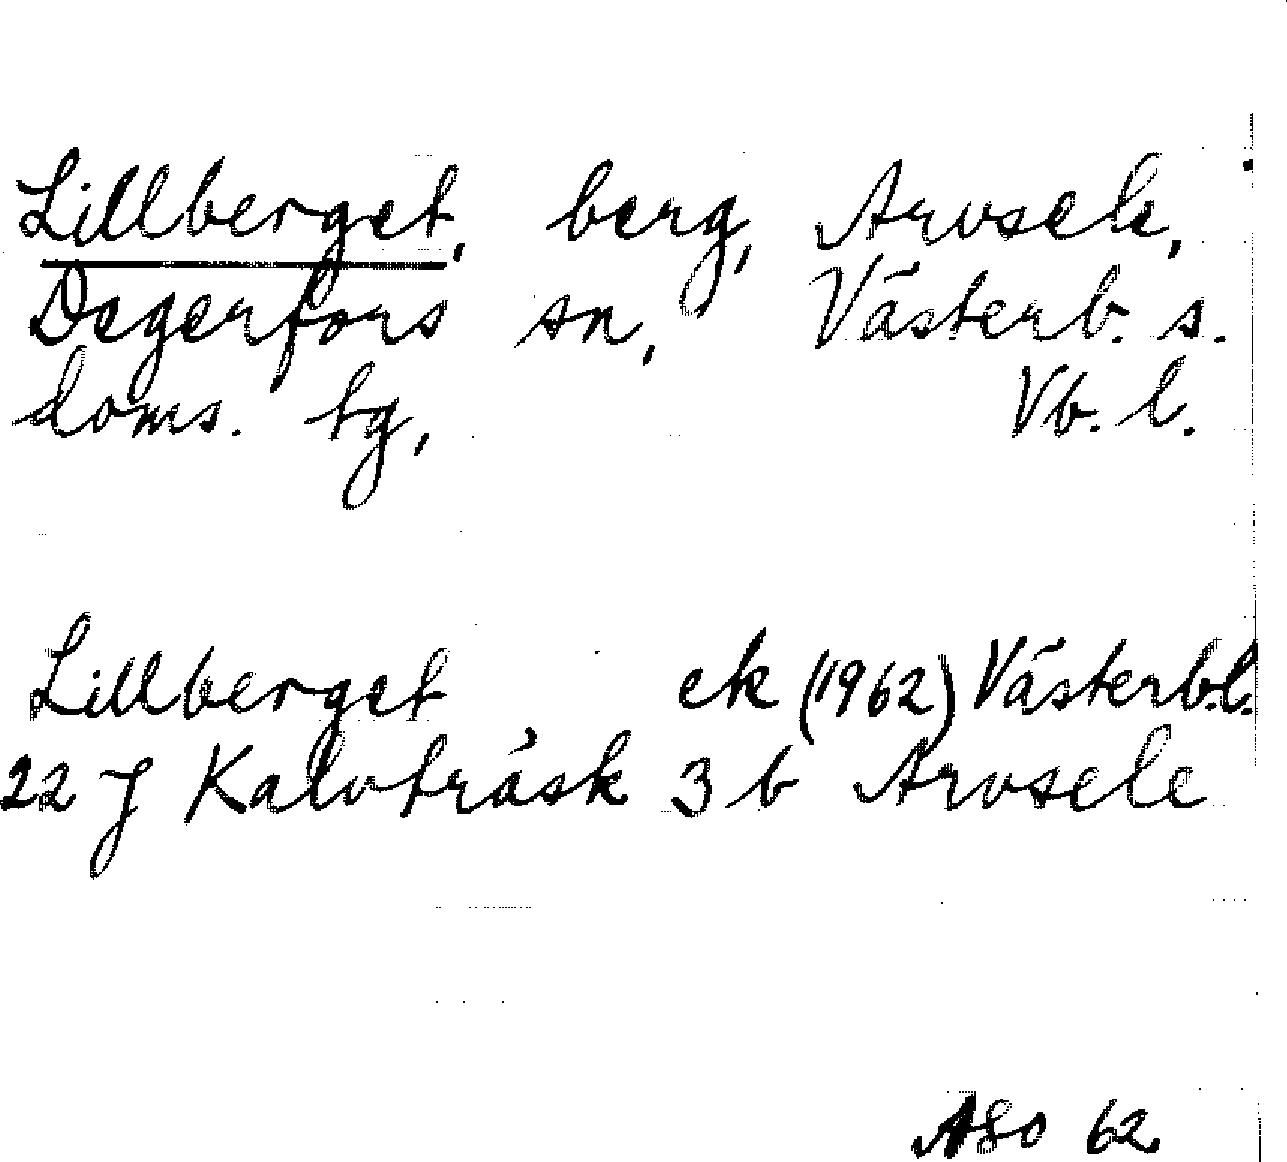 Lillberget, berg, Arvsele,
Degerfors sn, Västerb. s.
doms. tg, Vb. l.
Lillberget ek (1962) Västerb.l.
22 J Kalvträsk 3 b Arvsele
ASO 62